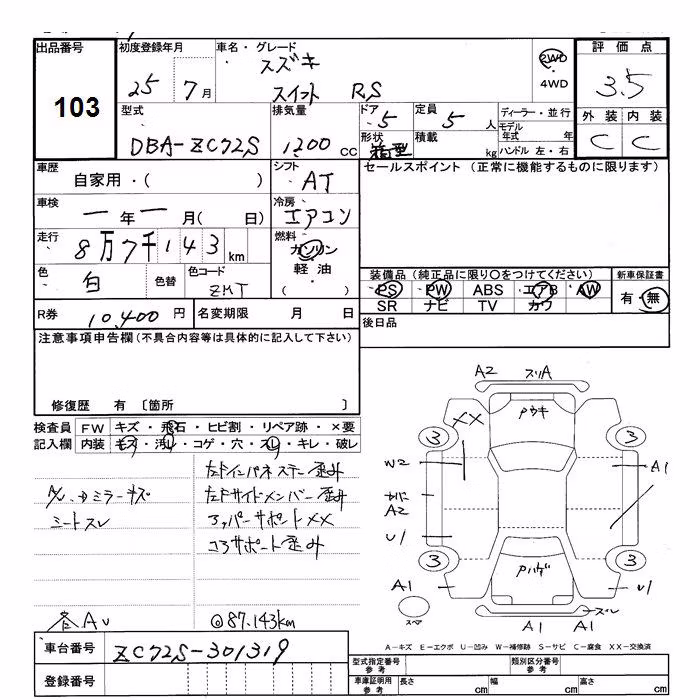 出品番号 初度登録年月 車名・グレード 評価点
103
25 7月 スズキ
スイフト RS
2WD
・
4WD
3.5
外装 内装
C C
型式 排気量 ドア 定員 ディーラー・並行
DBA-ZC72S 1,200 cc 5 5 人
形状 積載 モデル年式 年
箱型 kg ハンドル 左・右
車歴 シフト セールスポイント (正常に機能するものに限ります)
自家用・( ) AT
車検 冷房
一年一月( 日) エアコン
走行 燃料
8万7千143 km ガソリン
軽油・
( )
色 色替 色コード
白 ZMT
装備品 (純正品に限り○をつけてください) 新車保証書
PS PW ABS エアB AW 有・無
SR ナビ TV カワ
R券 10,400 円 名変期限 月 日
後日品
注意事項申告欄 (不具合内容等は具体的に記入して下さい)
修復歴 有 〔箇所 〕
検査員 FW キズ・飛石・ヒビ割・リペア跡・×要
記入欄 内装 キズ・汚レ・コゲ・穴・スレ・キレ・破レ
ミラーキズ
シートスレ
左ドインパネステー歪み
左Fサイドメンバー歪み
アッパーサポートXX
コアサポート歪み
各AU
◎87.143km
A2 スリA
Pウキ
XX
3 3
W2 A1
A2
U1
3 3
Pハゲ
A1 U1
スペア スレ
A1 A1
A-キズ E-エクボ U-凹み W-補修跡 S-サビ C-腐食 XX-交換済
車台番号 ZC72S-301319
登録番号
型式指定番号 参考 類別区分番号 参考
車庫証明用 参考 長さ cm 幅 cm 高さ cm